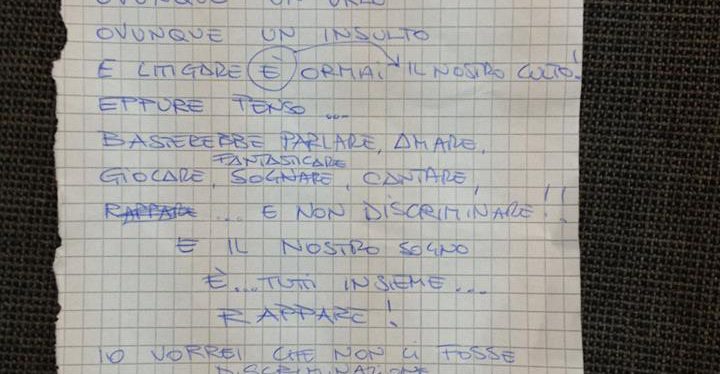 OVUNQUE UN URLO
OVUNQUE UN INSULTO
E LITIGARE È ORMAI IL NOSTRO CULTO!
EPPURE PENSO ...
BASTEREBBE PARLARE, AMARE,
FANTASTICARE
GIOCARE, SOGNARE, CANTARE,
RAPPARE ... E NON DISCRIMINARE!!
E IL NOSTRO SOGNO
È...TUTTI INSIEME...
RAPPARE!
IO VORREI CHE NON CI FOSSE
DISCRIMINAZIONE